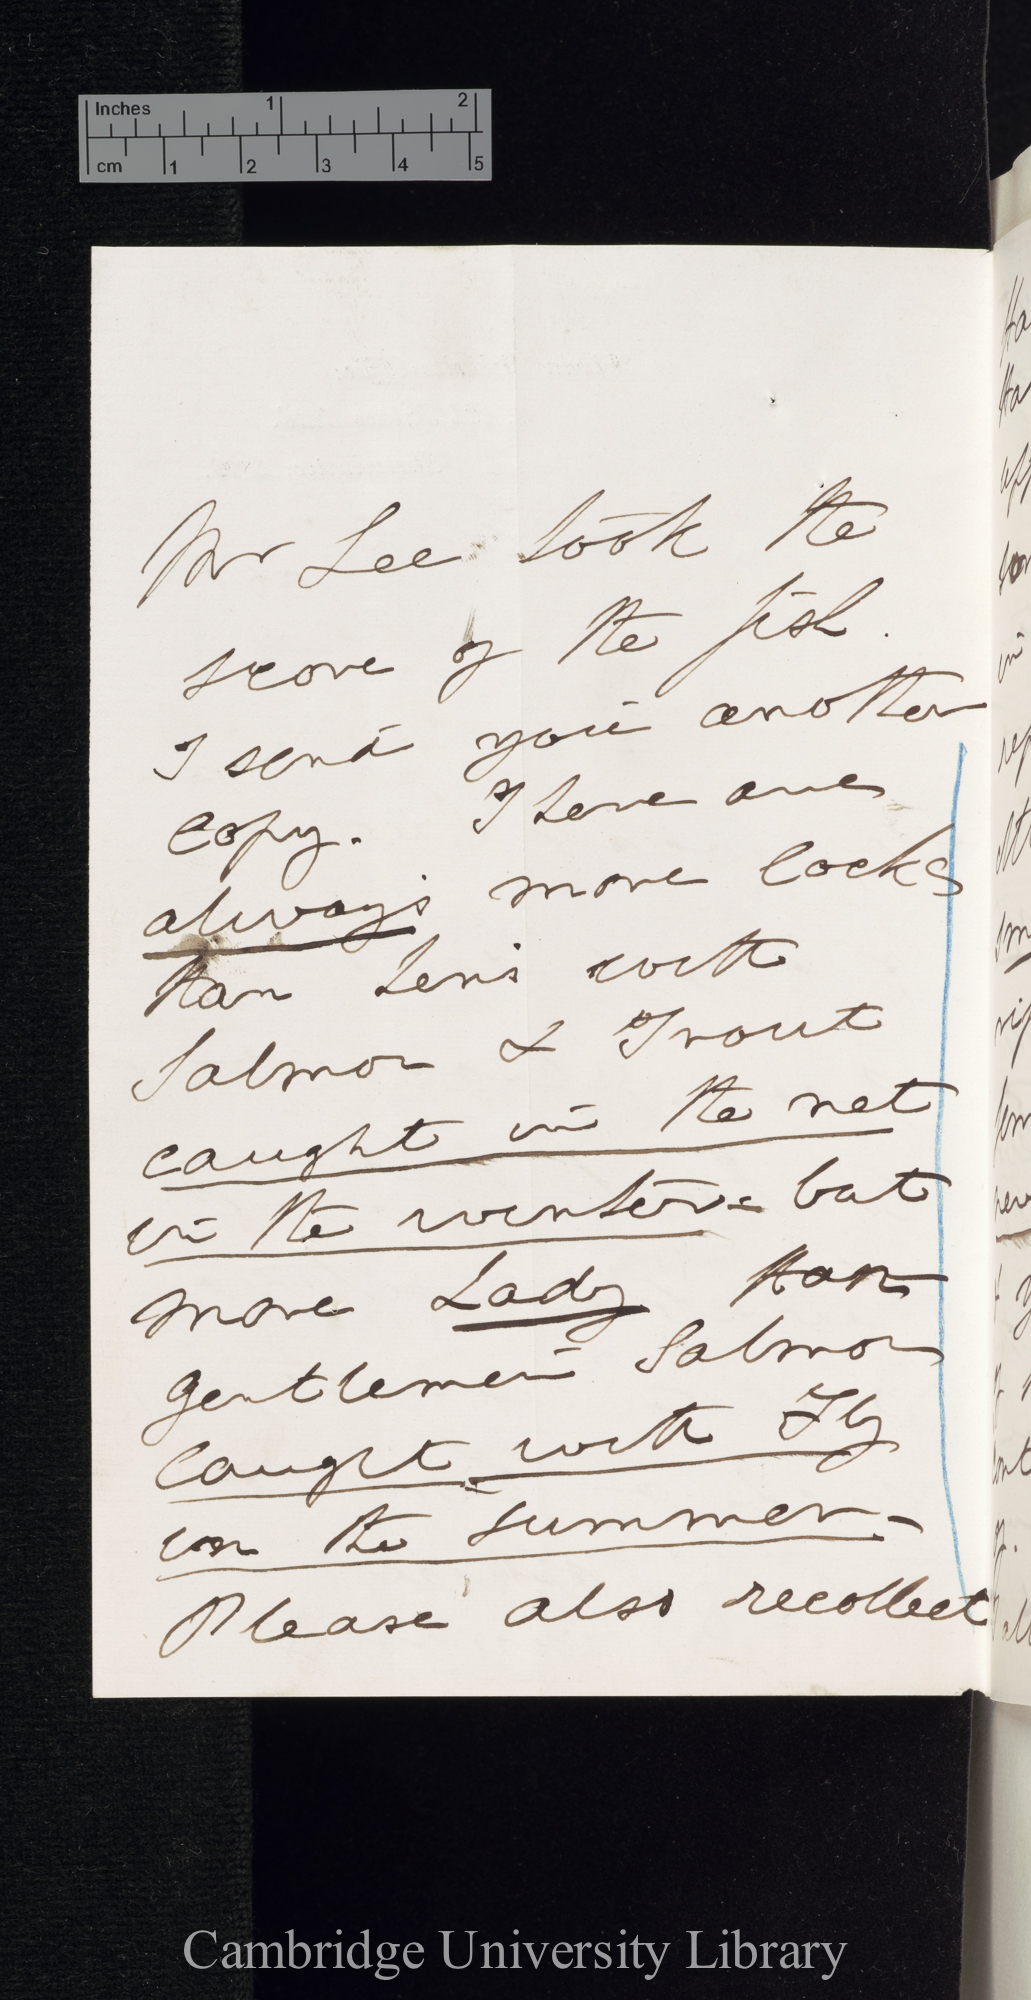 Inches 1 2
cm 1 2 3 4 5
Mr Lee took the
score of the fish.
I send you another
copy. There are
always more cocks
than hens with
Salmon & Trout
caught in the net
in the winter - but
more Lady than
gentlemen Salmon
caught with Fly
in the summer -
Please also recollect
Cambridge University Library